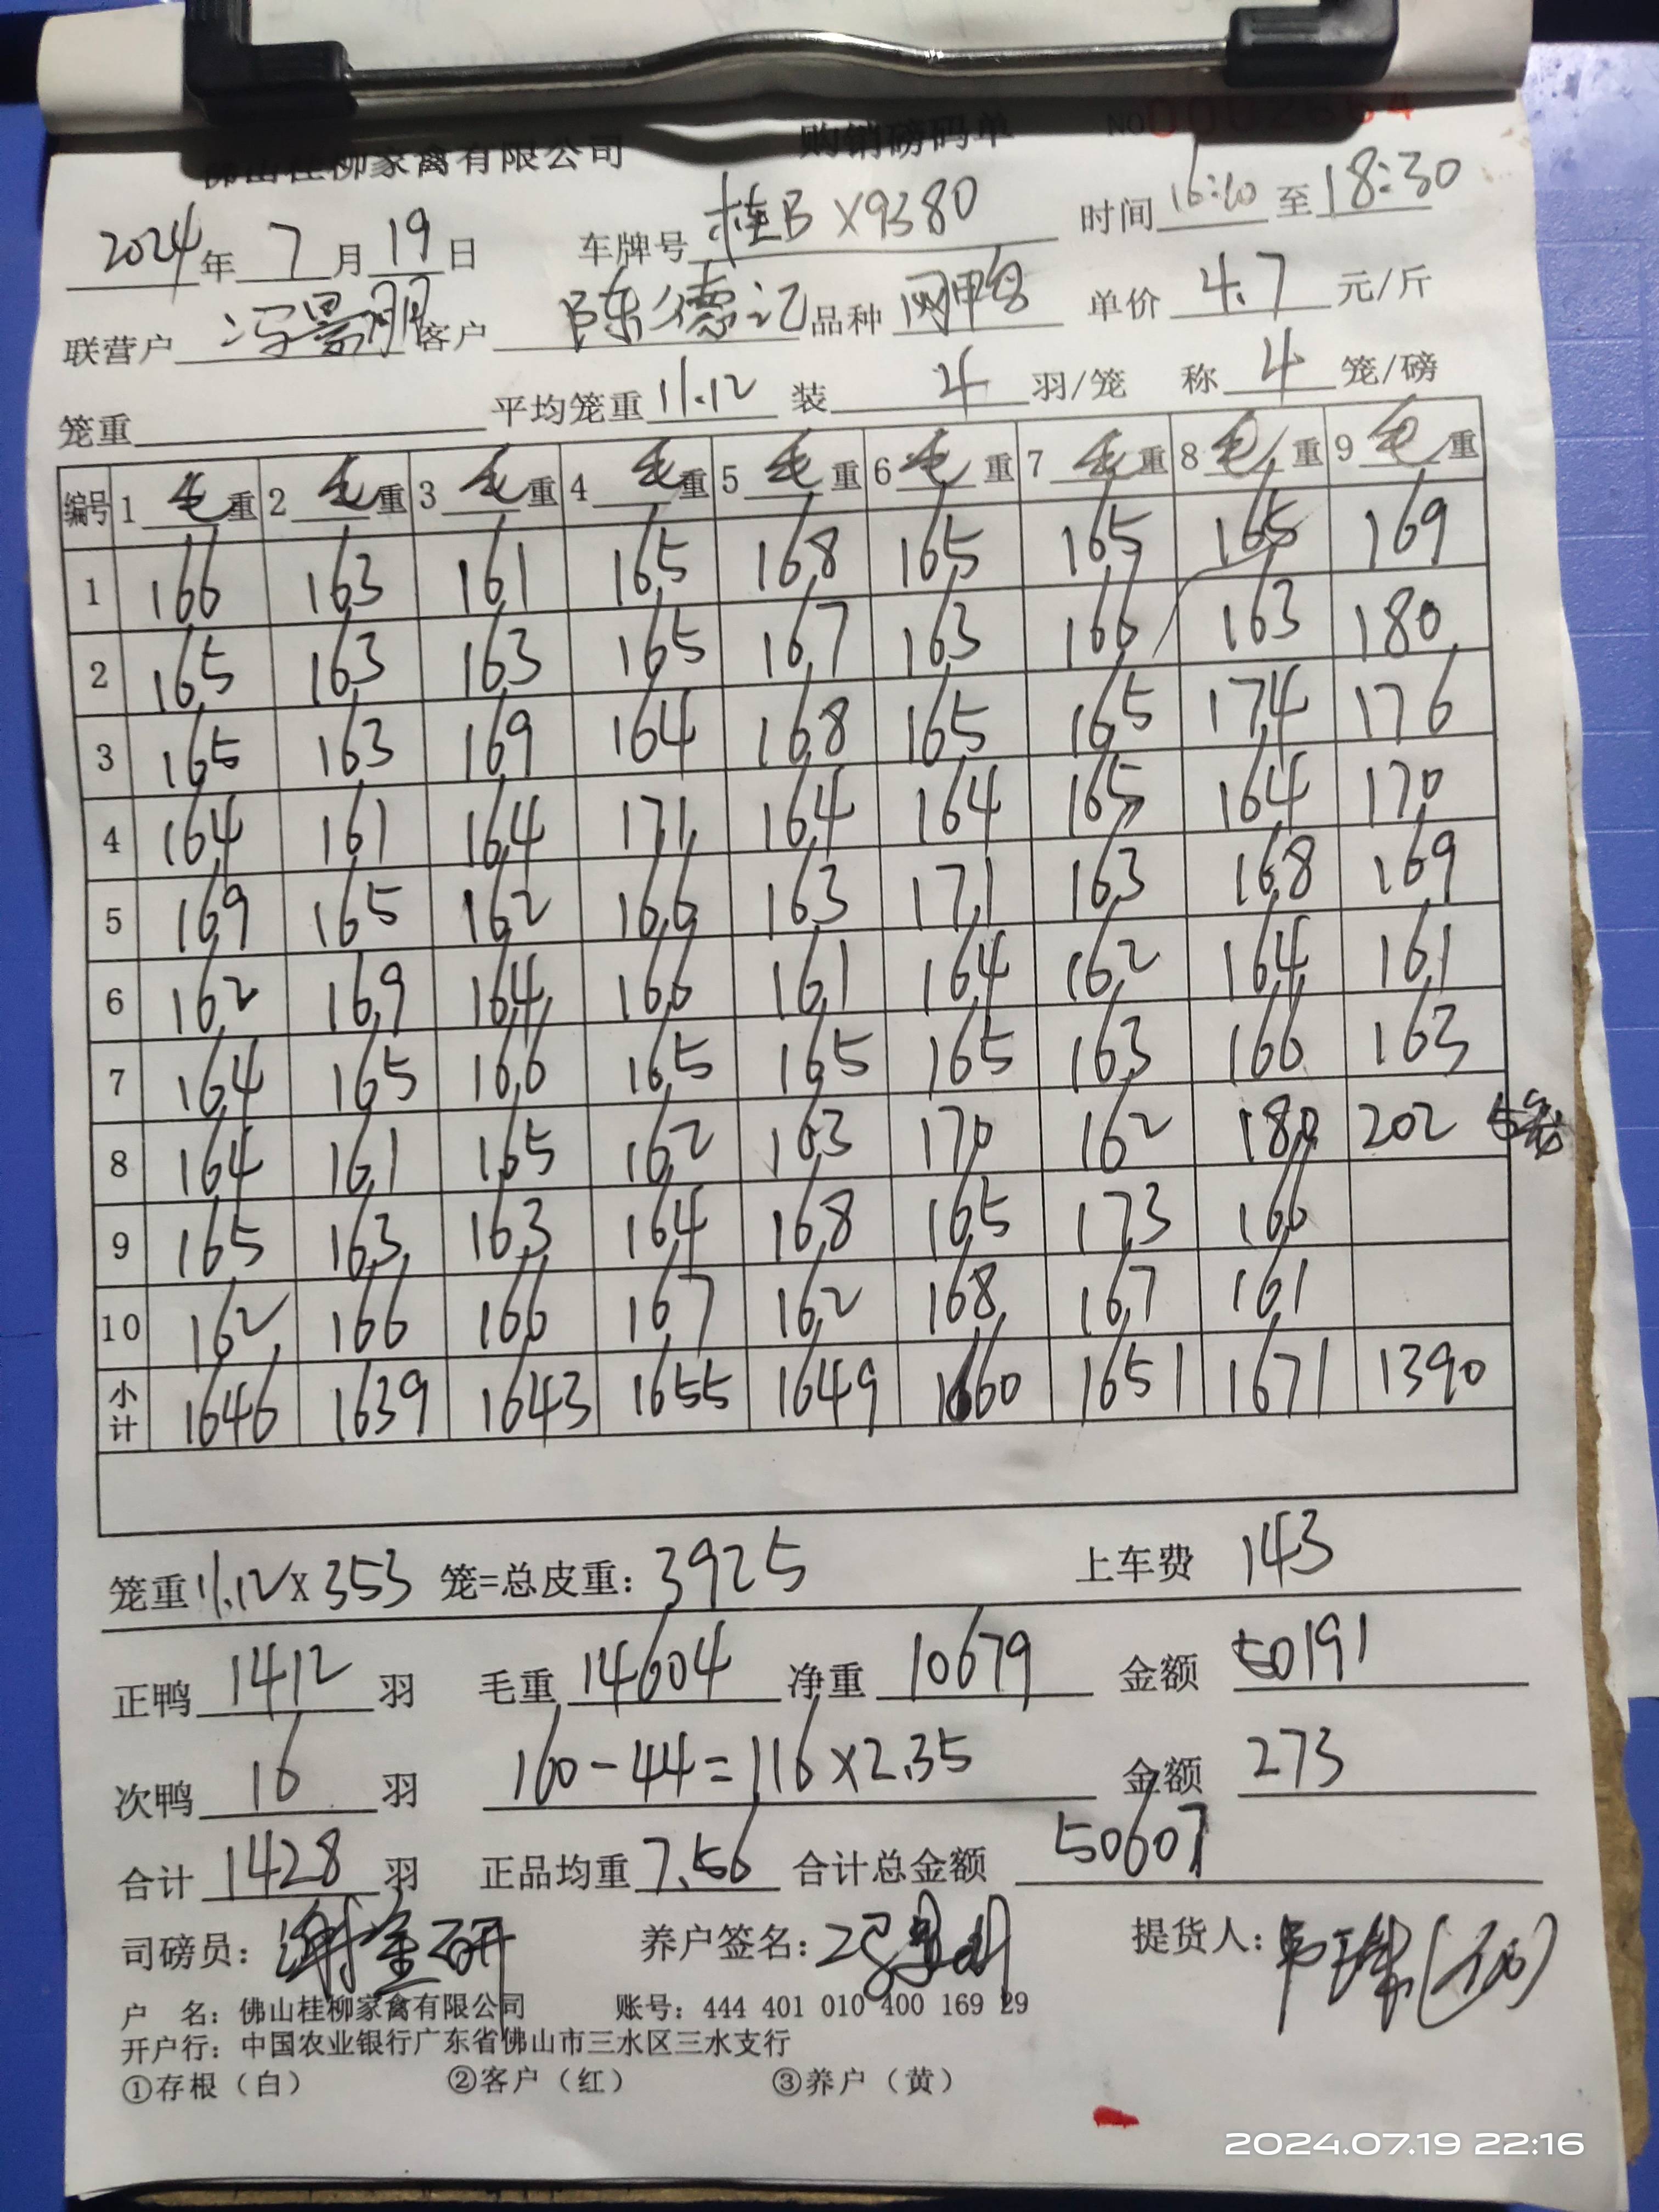 佛山桂柳家禽有限公司 购销磅码单 NO 0002664
2024年 7月 19日 车牌号 桂B X9380 时间 16:10 至 18:30
联营户 冯景朋 客户 陈德记 品种 网鸭 单价 4.7 元/斤
笼重 平均笼重 11.12 装 4 羽/笼 称 4 笼/磅
编号 1 毛重 2 毛重 3 毛重 4 毛重 5 毛重 6 毛重 7 毛重 8 毛重 9 毛重
1 166 163 161 165 168 165 165 165 169
2 165 163 163 165 167 163 166 163 180
3 165 163 169 164 168 165 165 174 176
4 164 161 164 171 164 164 165 164 170
5 169 165 162 166 163 171 163 168 169
6 162 169 164 166 161 164 162 164 161
7 164 165 166 165 165 165 163 166 163
8 164 161 165 162 163 170 162 180 202 5笼
9 165 163 163 164 168 165 173 166
10 162 166 166 167 162 168 167 161
小计 1646 1639 1643 1655 1649 1660 1651 1671 1390
笼重 11.12 x 353 笼=总皮重: 3925 上车费 143
正鸭 1412 羽 毛重 14604 净重 10679 金额 50191
次鸭 16 羽 160-44=116×2.35 金额 273
合计 1428 羽 正品均重 7.56 合计总金额 50607
司磅员: 谢金研 养户签名: 冯景朋 提货人:
户 名: 佛山桂柳家禽有限公司 账号: 444 401 010 400 169 29
开户行: 中国农业银行广东省佛山市三水区三水支行
①存根（白） ②客户（红） ③养户（黄）
2024.07.19 22:16